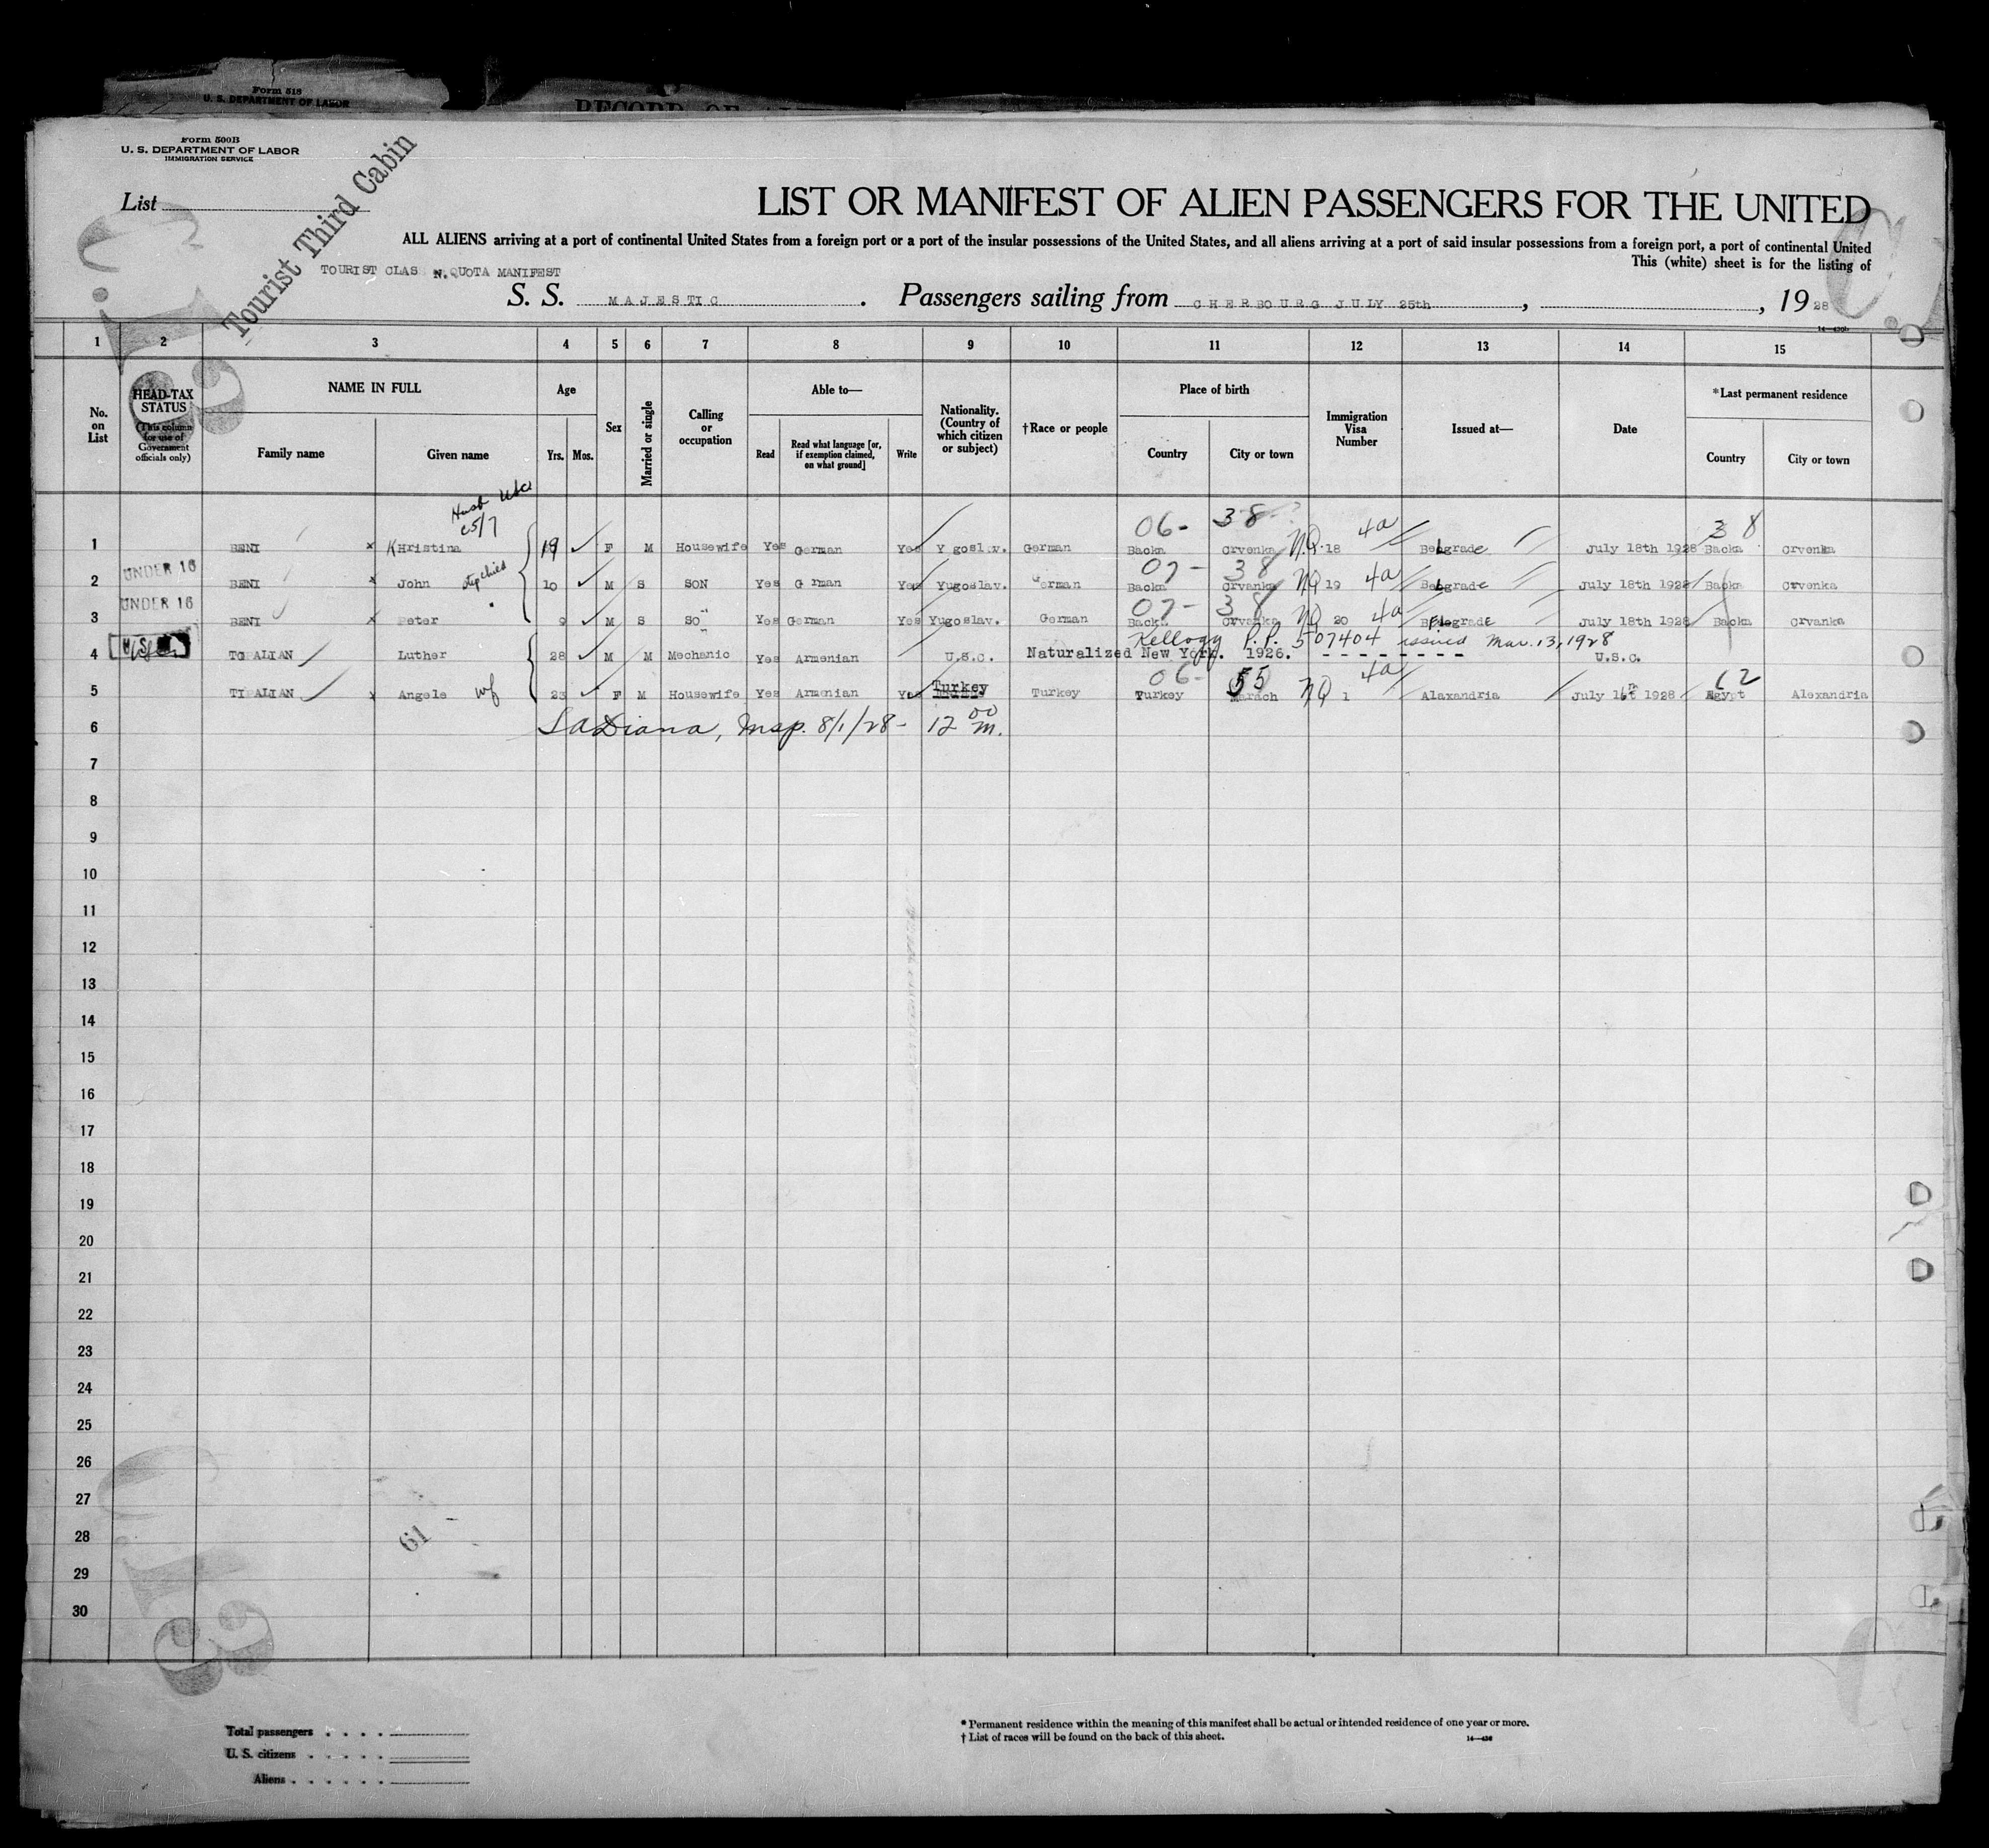 Form 518
U. S. DEPARTMENT OF LABOR
RECORD OF
Form 500B
U. S. DEPARTMENT OF LABOR
IMMIGRATION SERVICE
Tourist Third Cabin
List
LIST OR MANIFEST OF ALIEN PASSENGERS FOR THE UNITED
ALL ALIENS arriving at a port of continental United States from a foreign port or a port of the insular possessions of the United States, and all aliens arriving at a port of said insular possessions from a foreign port, a port of continental United
This (white) sheet is for the listing of
TOURIST CLAS N. QUOTA MANIFEST
S. S. MAJESTIC . Passengers sailing from CHERBOURG JULY 25th , , 19 28
14—430b
1 2 3 4 5 6 7 8 9 10 11 12 13 14 15
No. on List
HEAD-TAX STATUS
(This column for use of Government officials only)
NAME IN FULL
Family name Given name
Age
Yrs. Mos.
Sex
Married or single
Calling or occupation
Able to—
Read
Read what language [or, if exemption claimed, on what ground]
Write
Nationality. (Country of which citizen or subject)
†Race or people
Place of birth
Country City or town
Immigration Visa Number
Issued at—
Date
*Last permanent residence
Country City or town
Husb
c5/7
06- 38 4a 38
1 BENI x Khristina 19 F M Housewife Yes German Yes Y goslav. German Backa Crvenka NQ 18 Belgrade July 18th 1928 Backa Crvenka
07- 38 4a
2 UNDER 16 BENI x John stepchild 10 M S SON Yes G rman Yes Yugoslav. German Backa Crvanka NQ 19 Belgrade July 18th 1928 Backa Crvenka
07- 38 4a
3 UNDER 16 BENI x Peter 9 M S SO Yes German Yes Yugoslav. German Back. Crvanka NQ 20 Belgrade July 18th 1928 Backa Crvanka
Kellogg P.P. 507404 issued Mar. 13, 1928
4 TOPALIAN Luther 28 M M Mechanic Yes Armenian U.S.C. Naturalized New York. 1926. - - - - - - - - U.S.C.
06- 55 4a 62
5 TIPALIAN x Angele wf 23 F M Housewife Yes Armenian Yes Turkey Turkey Turkey Marach NQ 1 Alaxandria July 16th 1928 Egypt Alexandria
6 LaDiana, Insp. 8/1/28- 12 00 m.
7
8
9
10
11
12
13
14
15
16
17
18
19
20
21
22
23
24
25
26
27
28
29
30
61
Total passengers . . . .
U. S. citizens . . . . .
Aliens . . . . . .
* Permanent residence within the meaning of this manifest shall be actual or intended residence of one year or more.
† List of races will be found on the back of this sheet.
14—430